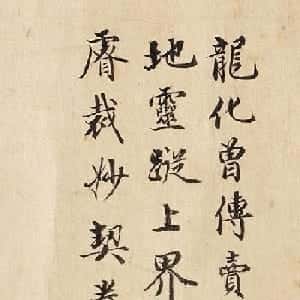 龍化曾傳賣
地靈蹤上界
睿裁妙契